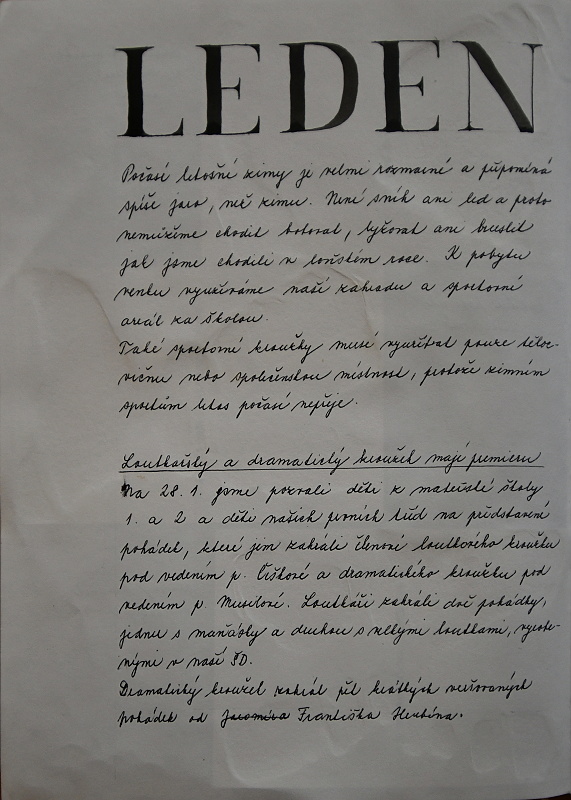 LEDEN
Počasí letošní zimy je velmi rozmarné a připomíná
spíše jaro, než zimu. Není sníh ani led a proto
nemůžeme chodit bobovat, lyžovat ani bruslit
jak jsme chodili v loňském roce. K pobytu
venku využíváme naší zahradu a sportovní
areál za školou.
Také sportovní kroužky musí využívat pouze těloc-
vičnu nebo společenskou místnost, protože zimním
sportům letos počasí nepřeje.
Loutkařský a dramatický kroužek mají premieru
Na 28. 1. jsme pozvali děti z mateřské školy
1. a 2 a děti našich prvních tříd na představení
pohádek, které jim zahráli členové loutkového kroužku
pod vedením p. Čiškové a dramatického kroužku pod
vedením p. Musilové. Loutkáři zahráli dvě pohádky,
jednu s maňásky a druhou s velkými loutkami, vyrobe-
nými v naší ŠD.
Dramatický kroužek zahrál pět krátkých veršovaných
pohádek od Jaromíra Františka Hrubína.